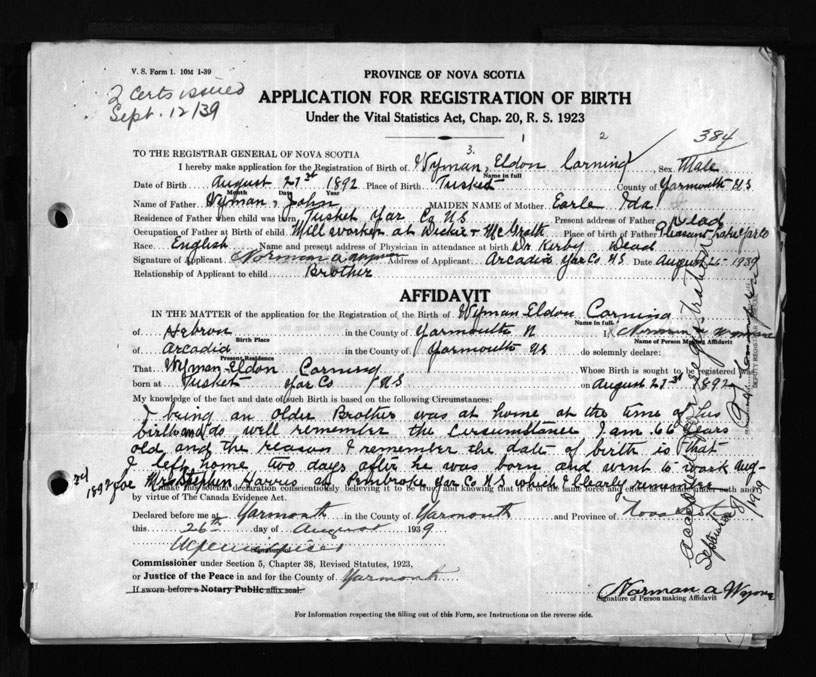 V. S. Form 1. 10M 1-39
2 Certs issued
Sept. 12/39
PROVINCE OF NOVA SCOTIA
APPLICATION FOR REGISTRATION OF BIRTH
Under the Vital Statistics Act, Chap. 20, R. S. 1923
384
3. 1 2
TO THE REGISTRAR GENERAL OF NOVA SCOTIA
I hereby make application for the Registration of Birth of Wyman, Eldon Corning Sex Male
Name in full
Date of Birth August 21st 1892 Place of Birth Tusket County of Yarmouth N.S
Month Day Year
Name of Father Wyman, John MAIDEN NAME of Mother Earle Ida
Residence of Father when child was born Tusket Yar Co N.S Present address of Father Dead
Occupation of Father at Birth of child Mill worker at Dicker + McGrath Place of birth of Father Pleasant Lake Yar Co
Race English Name and present address of Physician in attendance at birth Dr Kirby Dead
Signature of Applicant Norman A Wyman Address of Applicant Arcadia Yar Co N.S Date August 26 1939
Relationship of Applicant to child Brother
AFFIDAVIT
IN THE MATTER of the application for the Registration of the Birth of Wyman Eldon Corning
Name in full
of Hebron in the County of Yarmouth N I, Norman A Wyman
Birth Place Name of Person Making Affidavit
of Arcadia in the County of Yarmouth N.S do solemnly declare:
Present Residence
That Wyman Eldon Corning Whose Birth is sought to be registered was
born at Tusket Yar Co N.S on August 21st 1892
My knowledge of the fact and date of such Birth is based on the following Circumstances:
I being an older Brother was at home at the time of his
birth and do well remember the Circumstance I am 66 years
old and the reason I remember the date of birth is that
I left home two days after he was born and went to work Aug-
23d 1892 for Mr Stephen Harris at Pembroke Yar Co N.S which I clearly remember
I make this solemn declaration conscientiously believing it to be true and knowing that it is of the same force and effect as if made under oath and
by virtue of The Canada Evidence Act.
Declared before me at Yarmouth in the County of Yarmouth and Province of Nova Scotia
this 26th day of August 1939
Commissioner under Section 5, Chapter 38, Revised Statutes, 1923,
or Justice of the Peace in and for the County of Yarmouth
If sworn before a Notary Public affix seal.
Norman A Wyman
Signature of Person making Affidavit
For Information respecting the filling out of this Form, see Instructions on the reverse side.
Accepted for registration
September 9 1939